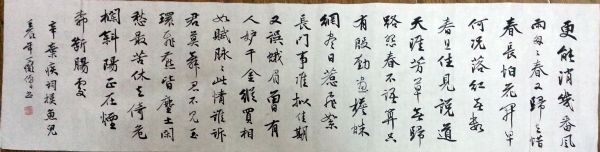 更能消幾番風
雨匆匆春又歸去惜
春長怕花開早
何況落紅無數
春且住見說道
天涯芳草無歸
路怨春不語算只
有殷勤畫檐蛛
網盡日惹飛絮
長門事準擬佳期
又誤蛾眉曾有
人妒千金縱買相
如賦脉脉此情誰訴
君莫舞君不見玉
環飛燕皆塵土閑
愁最苦休去倚危
欄斜陽正在煙
柳斷腸處
辛棄疾詞摸魚兒